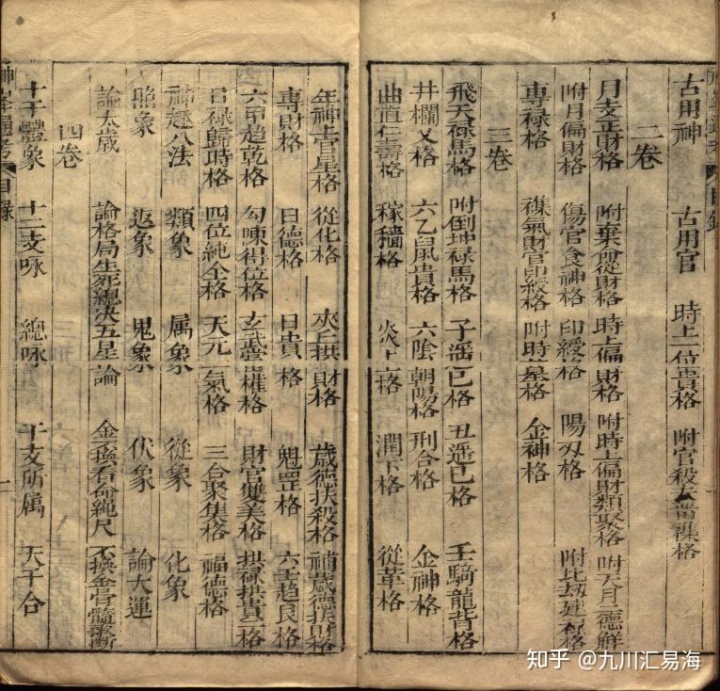 古用神 古用官 時上一位貴格 附官殺去混雜格
二卷
月支正財格 附棄命從財格 時上偏財格 附時上偏財類聚格 附天月二德解
附月偏財格 傷官食神格 印綬格 陽刃格 附比劫建祿格
專祿格 襍氣財官印綬格 附時墓格 金神格
三卷
飛天祿馬格 附倒冲祿馬格 子遙巳格 丑遙巳格 壬騎龍背格
井欄叉格 六乙鼠貴格 六陰朝陽格 刑合格 金神格
曲直仁壽格 稼穡格 炎上格 潤下格 從革格
年神青官星格 從化格 夾丘拱財格 歲德扶殺格 補歲德扶財格
專財格 日德格 日貴格 魁罡格 六壬趨艮格
六甲趨乾格 勾陳得位格 玄武當權格 財官雙美格 拱祿拱貴二格
日祿歸時格 四位純全格 天元一氣格 三合聚集格 福德格
神趣八法 類象 属象 從象 化象
照象 返象 鬼象 伏象 論大運
論太歲 論格局生死總决 五星論 金不換看命繩尺 不換金骨髓歌斷
四卷
十干體象 十二支咏 總咏 干支所属 天干合
神峯通考 目錄
知乎 @九川汇易海